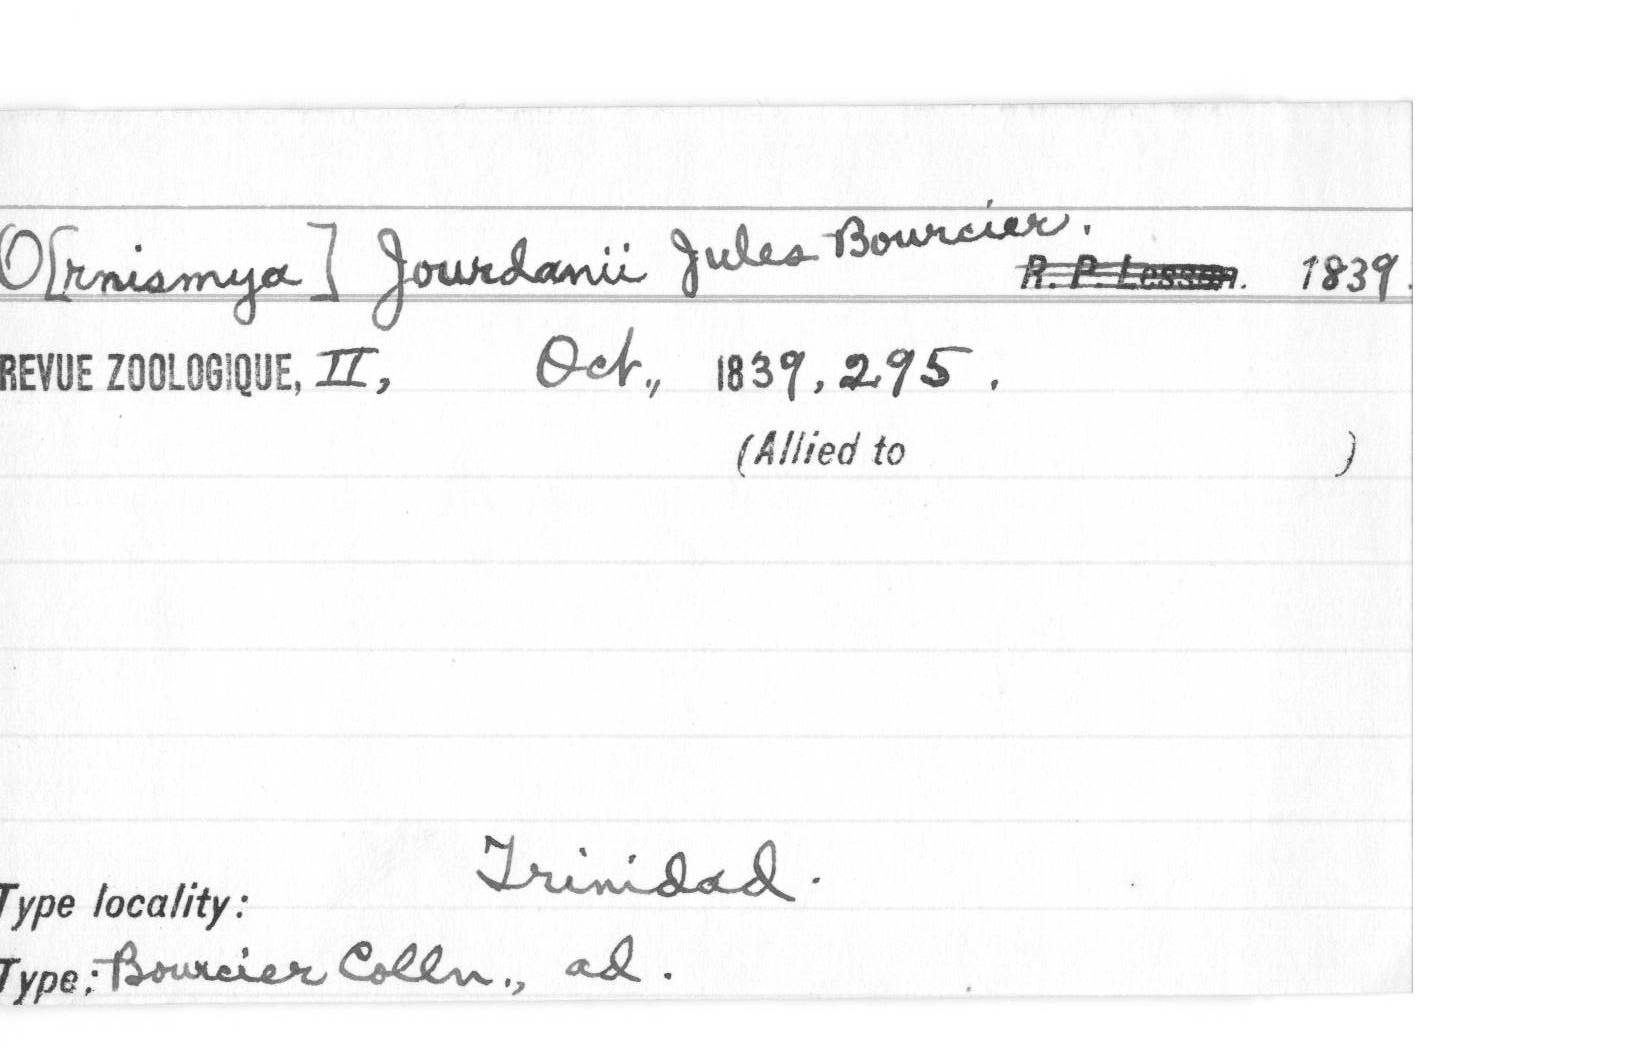 O[rnismya] Jourdanii Jules Bourcier.
R. P. Lesson. 1839.
REVUE ZOOLOGIQUE, II, Oct., 1839, 295.
(Allied to )
Trinidad.
Type locality:
Type: Bourcier Colln., ad.